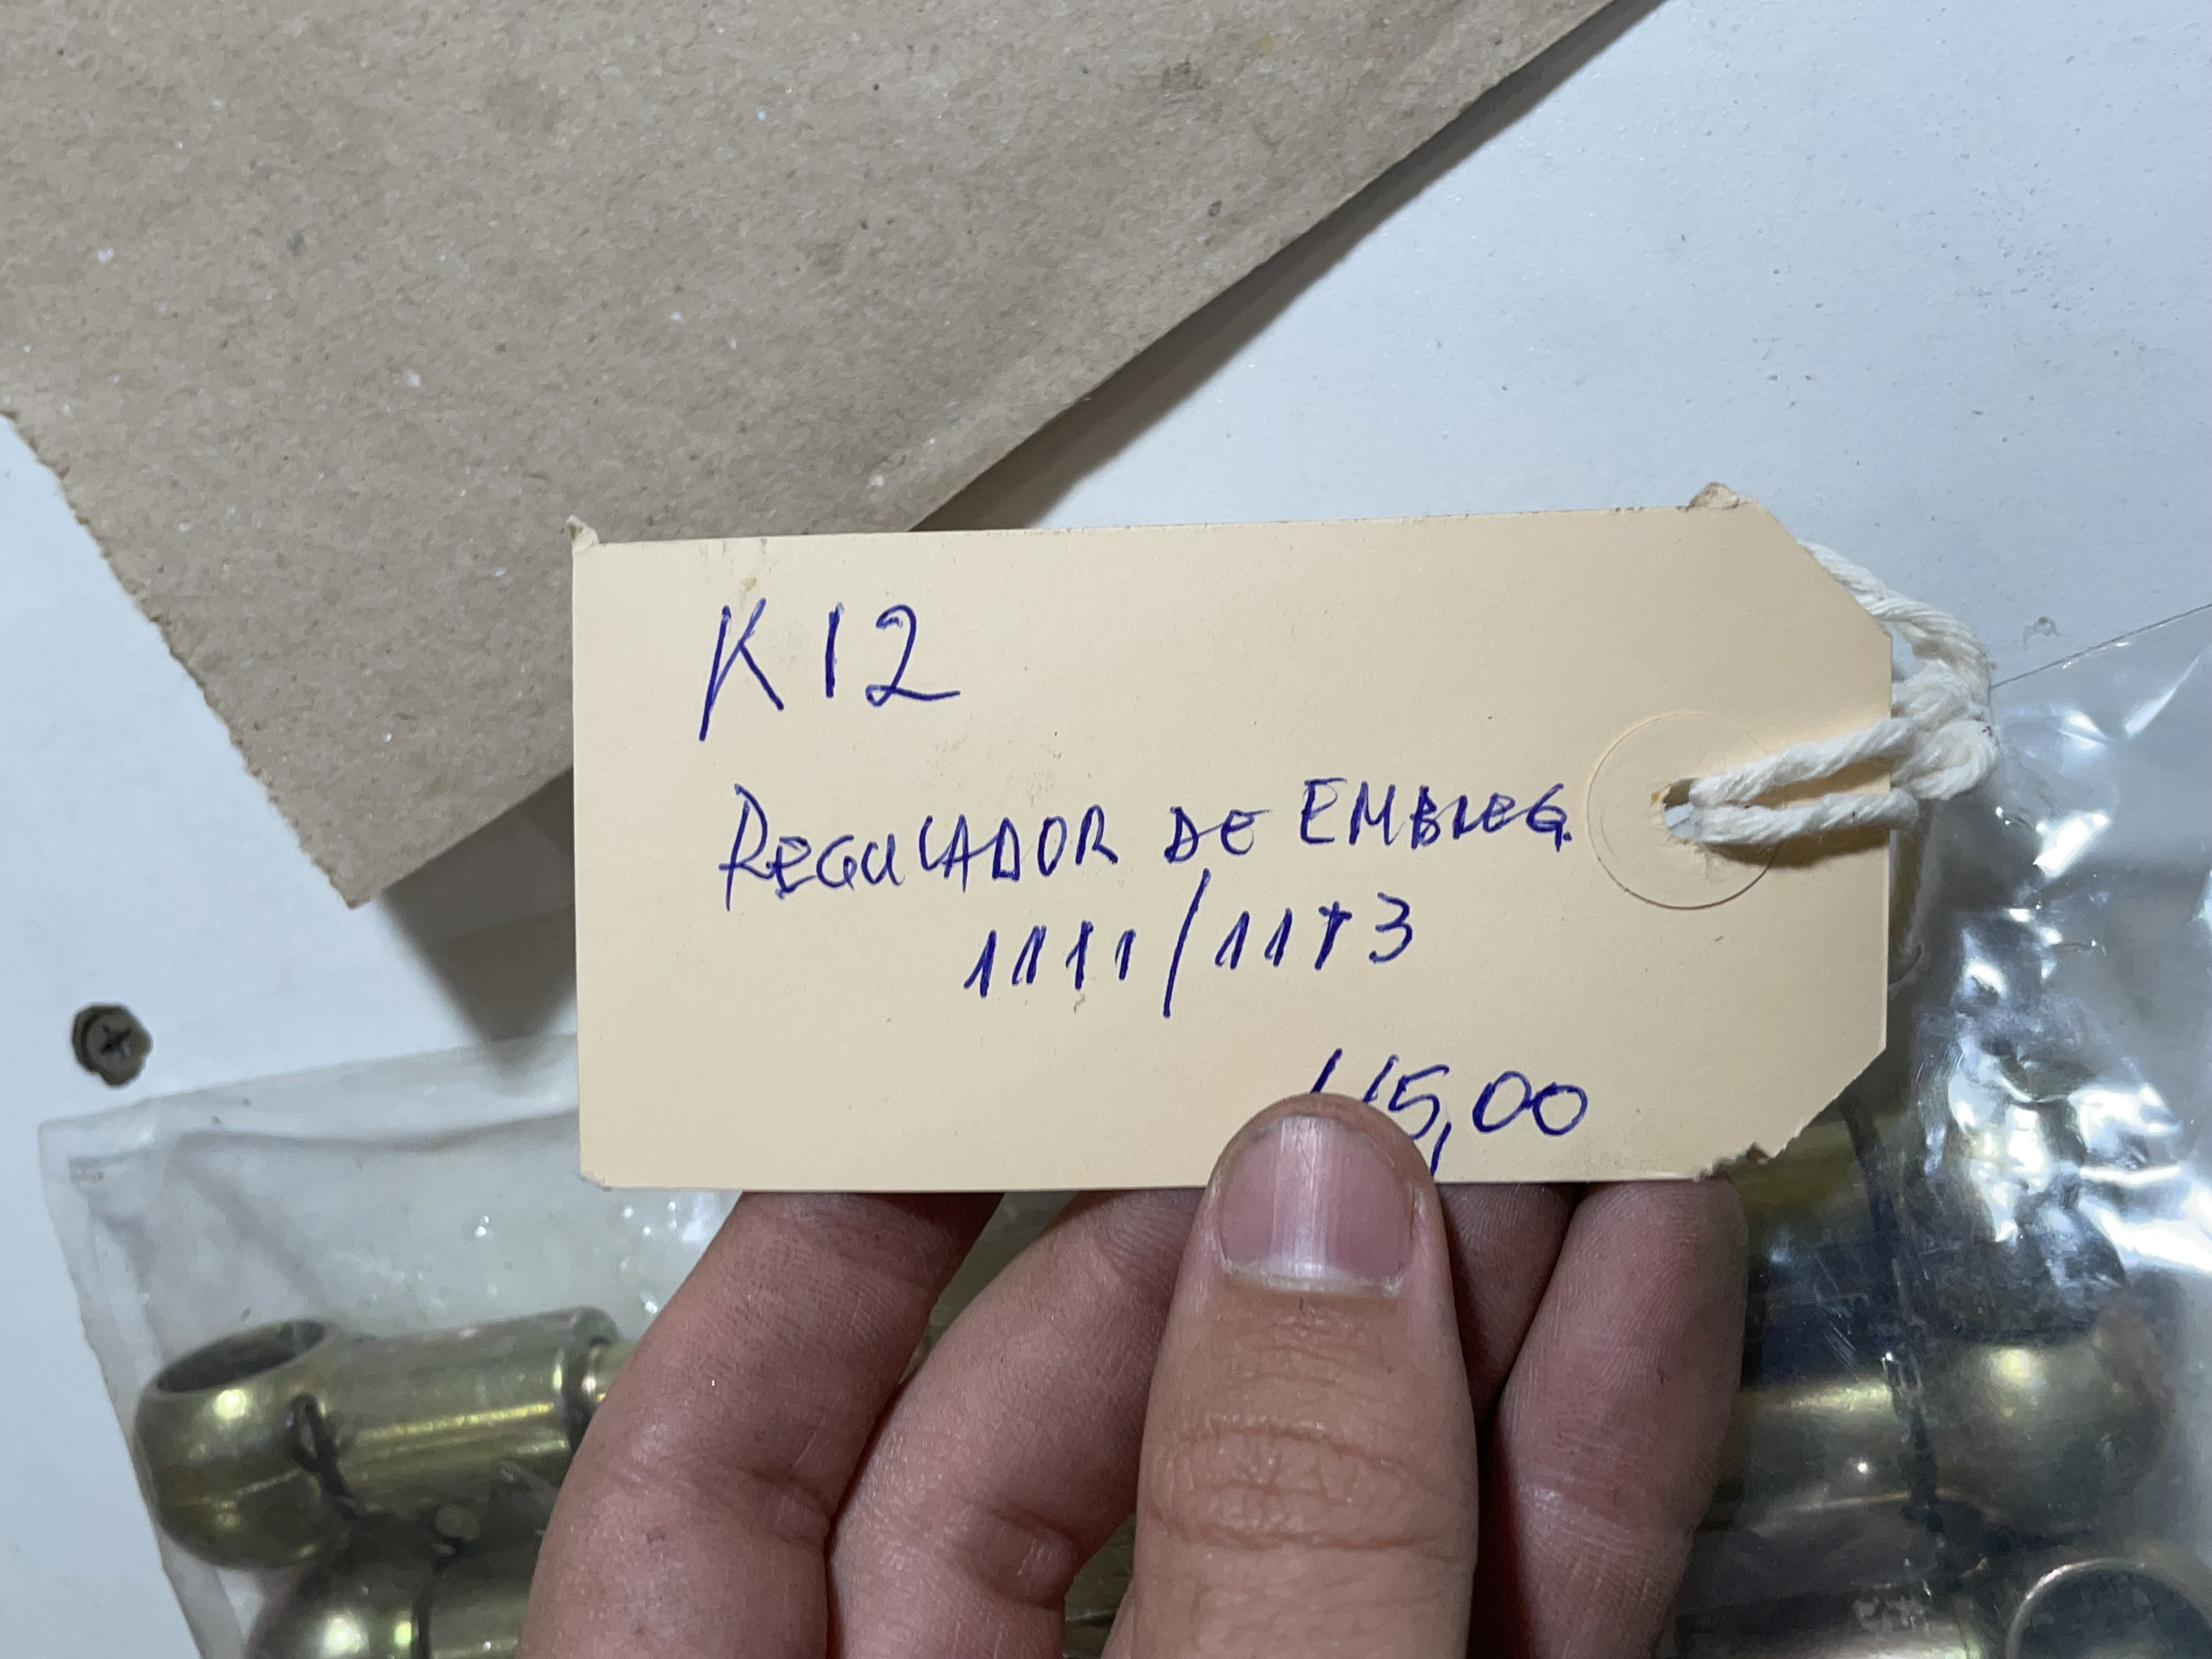 K12
REGULADOR DE EMBREG.
1111/1113
115,00